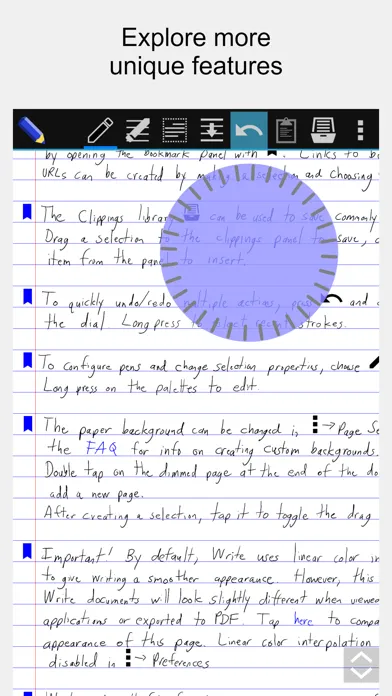 Explore more
unique features
by opening the bookmark panel with . Links to b
URLs can be created by a selection and choosing
The Clippings library can be used to save commonly
Drag a selection to the clippings panel to save,
item from the panel to insert.
To quickly undo/redo multiple actions, press and
the dial Long press to select recent strokes.
To configure pens and change selection properties, choose
Long press on the palettes to edit.
The paper background can be changed in → Page Se
the FAQ for info on creating custom backgrounds.
Double tap on the dimmed page at the end of the do
add a new page.
After creating a selection, tap it to toggle the drag
Important! By default, Write uses linear color in
to give writing a smoother appearance. However, this
Write documents will look slightly different when viewed
applications or exported to PDF. Tap here to compa
appearance of this page. Linear color interpolation
disabled in → Preferences